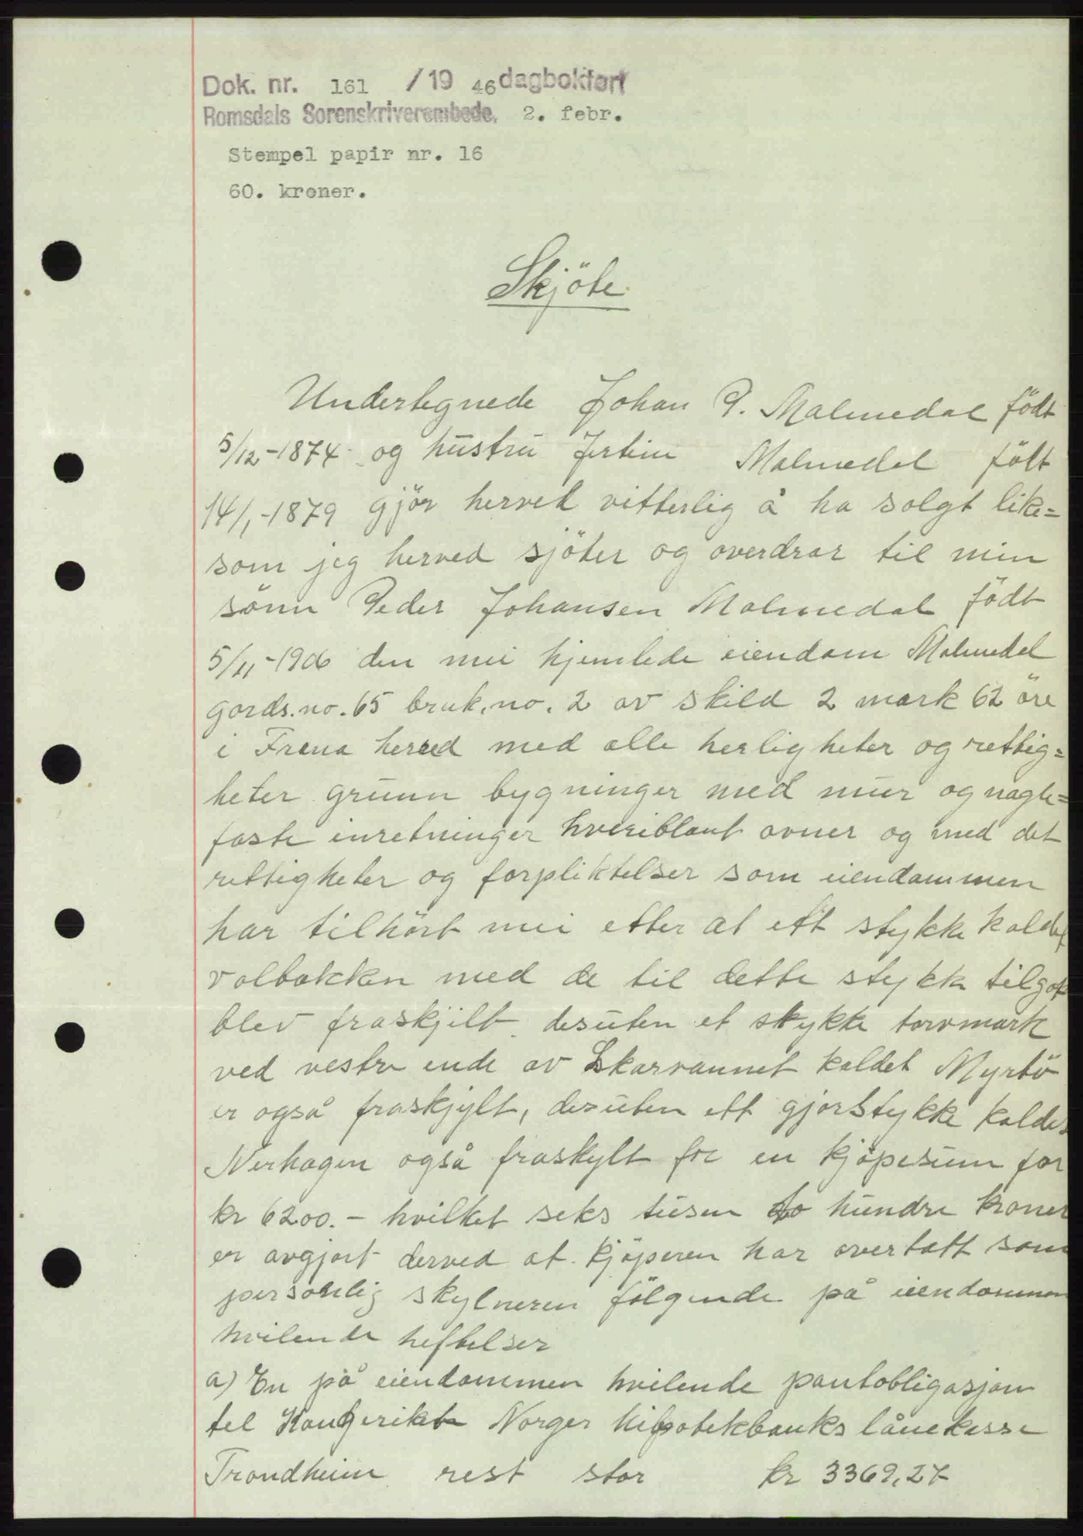 Dok. nr. 161 /19 46 dagbokført
Romsdals Sorenskriverembede. 2. febr.
Stempel papir nr. 16
60. kroner.
Skjöte
Undertegnede Johan P. Malmedal født
5/12-1874 og hustru Malmedal født
14/1-1879 gjör herved vitterlig å ha solgt like=
som jeg herved sjöter og overdrar til min
sönn Peder Johansen Malmedal födt
5/11-1906 den mei hjemlede eiendom Malmedal
gords.no. 65 bruk.no. 2 av skild 2 mark 62 öre
i Frena hered med alle herligheter og rettig=
heter grunn bygninger med mur og nagle=
faste inretninger hveriblant ovner og med det
rettigheter og forpliktelser som eiendammen
har tilhört mei etter at ett stykke kaldet
volbakken med de til dette stykk
blev fraskjilt desuten et stykke torvmark
ved vestre ende av Skarvannet kaldet Myrbö
er også fraskjylt, desuten ett gjorstykke kaldes
Nerhagen også fraskylt for en kjöpesum for
kr 6200.- hvilket seks tusen to hundre kroner
er avgjort derved at kjöperen har overtatt som
personlig skylneren fölgende på eiendommen
hvilende heftelser
a) En på eiendammen hvilende pantobligasjon
til Kongerikt Norges hipotekbanks lånekasse
Trondheim rest stor kr 3369,27